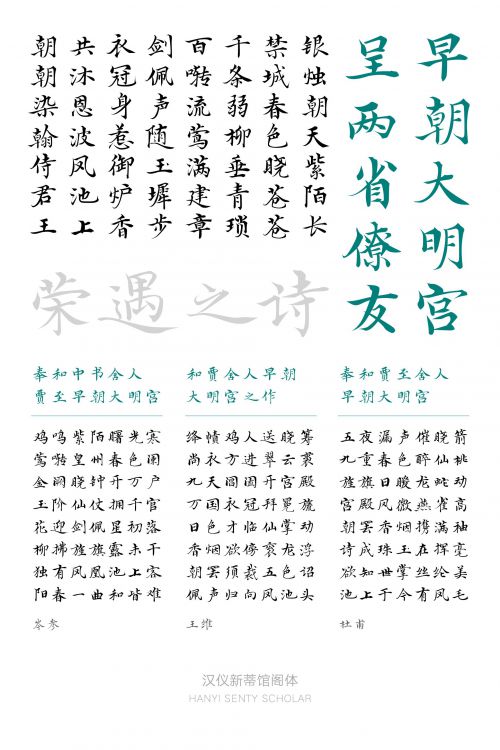 早朝大明宫
呈两省僚友
银烛朝天紫陌长
禁城春色晓苍苍
千条弱柳垂青琐
百啭流莺满建章
剑佩声随玉墀步
衣冠身惹御炉香
共沐恩波凤池上
朝朝染翰侍君王
荣遇之诗
奉和中书舍人
贾至早朝大明宫
鸡鸣紫陌曙光寒
莺啭皇州春色阑
金阙晓钟开万户
玉阶仙仗拥千官
花迎剑佩星初落
柳拂旌旗露未干
独有凤凰池上客
阳春一曲和皆难
岑参
和贾舍人早朝
大明宫之作
绛帻鸡人送晓筹
尚衣方进翠云裘
九天阊阖开宫殿
万国衣冠拜冕旒
日色才临仙掌动
香烟欲傍衮龙浮
朝罢须裁五色诏
佩声归向凤池头
王维
奉和贾至舍人
早朝大明宫
五夜漏声催晓箭
九重春色醉仙桃
旌旗日暖龙蛇动
宫殿风微燕雀高
朝罢香烟携满袖
诗成珠玉在挥毫
欲知世掌丝纶美
池上于今有凤毛
杜甫
汉仪新蒂馆阁体
HANYI SENTY SCHOLAR